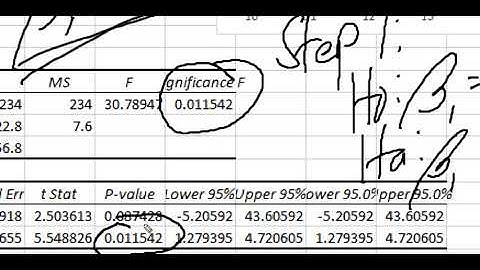 10 11 12 13
Step 1:
MS F gnificance F
234 234 30.78947 0.011542
22.8 7.6
56.8
Ho: β1 =
Ha: β1
d Err t Stat P-value Lower 95% Upper 95% ower 95.0% pper 95.0%
918 2.503613 0.087428 -5.20592 43.60592 -5.20592 43.60592
655 5.548826 0.011542 1.279395 4.720605 1.279395 4.720605